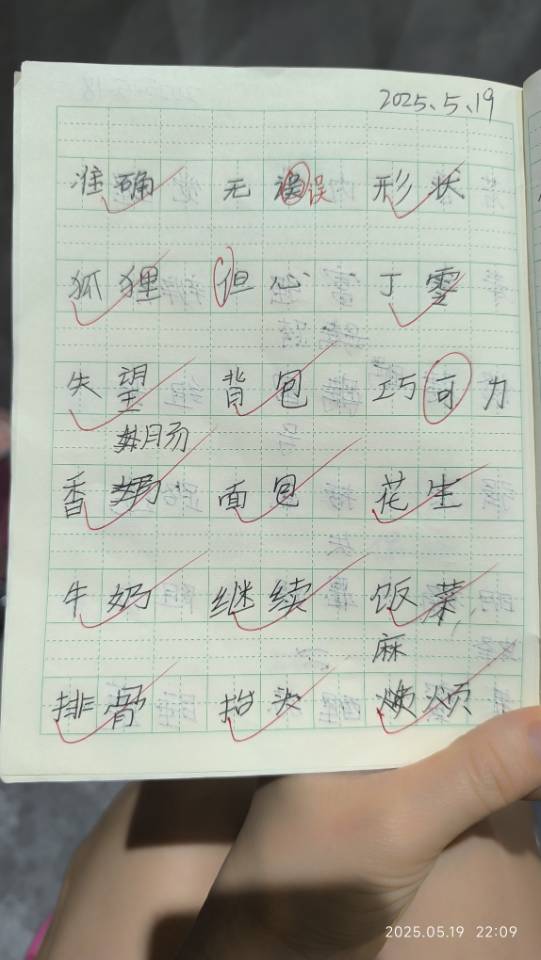 2025.5.19
准确 无误 误 形状
狐狸 但心 丁零
失望 背包 巧可力
肠
香 面包 花生
牛奶 继续 饭菜
麻
排骨 抬头 烦
2025.05.19 22:09